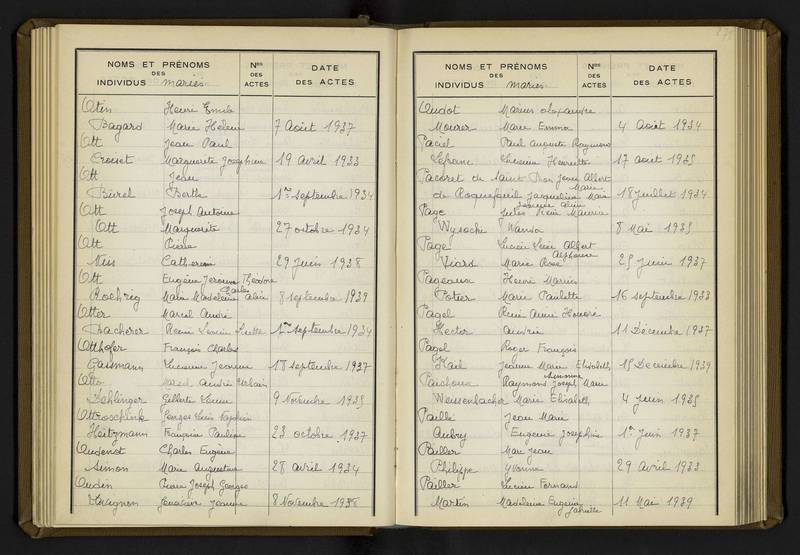 NOMS ET PRÉNOMS DES INDIVIDUS mariés Nos DES ACTES DATE DES ACTES
Otin Henri Emile
Bagard Marie Hélène 7 Août 1937
Ott Jean Paul
Crosset Marguerite Joséphine 19 avril 1933
Ott Jean
Burel Berthe 1er septembre 1934
Ott Joseph Antoine
Ott Marguerite 27 octobre 1934
Ott Pierre
Nuss Catherine 29 juin 1938
Ott Eugène Jérôme Théodore Charles
Roehrig Marie Madeleine Alice 8 septembre 1939
Otter Marcel André
Bacherer Renée Lucette 1er septembre 1934
Otthofer François Charles
Gassmann Lucienne Jeanne 18 septembre 1937
Otto Marcel André Urbain
Dehlinger Gilberte 9 Novembre 1935
Georges Louis
Heitzmann Françoise Pauline 23 octobre 1937
Oudenot Charles Eugène
Simon Marie Augustine 28 avril 1934
Oudin Pierre Joseph Georges
Geneviève Jeanne 8 Novembre 1938
NOMS ET PRÉNOMS DES INDIVIDUS mariés Nos DES ACTES DATE DES ACTES
Oudot Marius Alexandre
Mourer Marie Emma 4 Août 1934
Paciel Paul Auguste Raymond
Lefranc Lucienne Henriette 17 août 1935
Pacoret de Saint Bon Jean Albert
de Roquefeuil Jacqueline Marie 18 juillet 1934
Page Jules René Maurice
Wysocki Wanda 8 Mai 1935
Page Lucien Léon Albert Alphonse
Viard Marie Rose 25 juin 1937
Pageaux Henri Marius
Potier Marie Paulette 16 septembre 1933
Pagel René Henri Honoré
Hector Andrée 11 Décembre 1937
Pagel Roger François
Karl Jeanne Marie Elisabeth 15 Décembre 1939
Raymond Joseph Marie
Weissenbacher Marie Elisabeth 4 juin 1935
Paille Jean Marie
Aubry Eugénie Joséphine 1er juin 1937
Pailler Marc Jean
Philippe Yvonne 29 Avril 1933
Pailler Lucien Fernand
Martin Madeleine Eugénie Gabrielle 11 Mai 1939